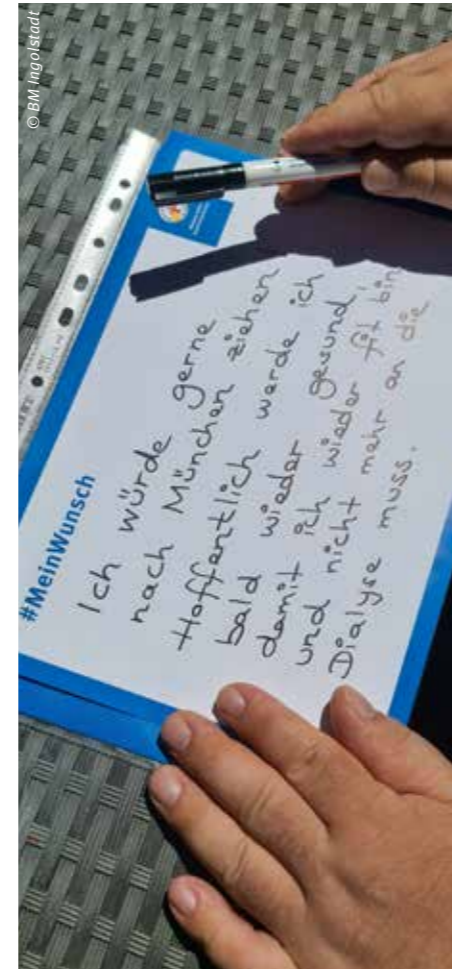 © BM Ingolstadt
#MeinWunsch
Ich würde gerne
nach München ziehen
Hoffentlich werde ich
bald wieder gesund,
damit ich wieder fit bin
und nicht mehr an die
Dialyse muss.